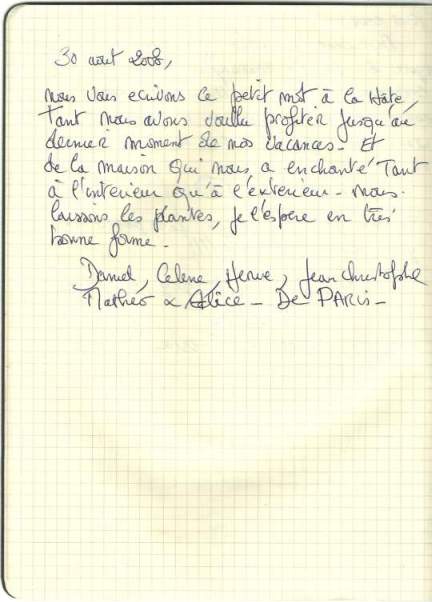 30 aout 2008,
nous vous ecrivons ce petit mot à la Hâte,
Tant nous avons voullu profiter jusqu'au
dernier moment de nos vacances - Et
de la maison qui nous a enchanté Tant
à l'interieur qu'à l'exterieur - nous
laissons les plantes, je l'espère en très
bonne forme -
Daniel, Celene, Herve, Jean Christophe
Mathéo & Alice - De PARIS -